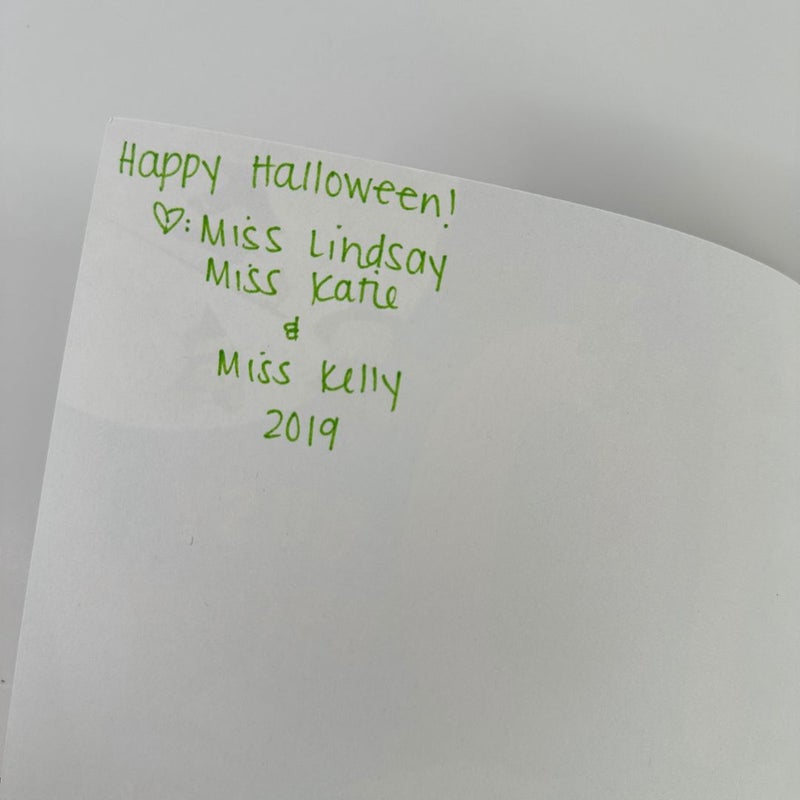 Happy Halloween!
♡: Miss Lindsay
Miss Katie
&
Miss Kelly
2019